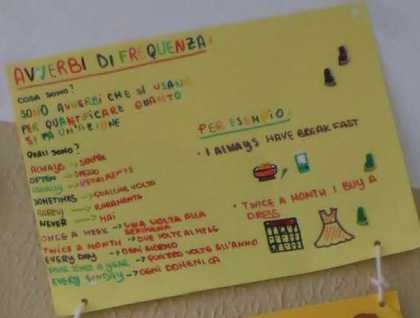 AVVERBI DI FREQUENZA:
COSA SONO?
SONO AVVERBI CHE SI USANO
PER QUANTIFICARE QUANTO
SI FA UN'AZIONE
QUALI SONO?
ALWAYS → SEMPRE
OFTEN → SPESSO
USUALLY → USUALMENTE
SOMETIMES → QUALCHE VOLTA
RARELY → RARAMENTE
NEVER → MAI
ONCE A WEEK → UNA VOLTA ALLA
SETTIMANA
TWICE A MONTH → DUE VOLTE AL MESE
EVERY DAY → OGNI GIORNO
FOUR TIMES A YEAR → QUATTRO VOLTE ALL'ANNO
EVERY SUNDAY → OGNI DOMENICA
PER ESEMPIO:
• I ALWAYS HAVE BREAKFAST
• TWICE A MONTH I BUY A
DRESS